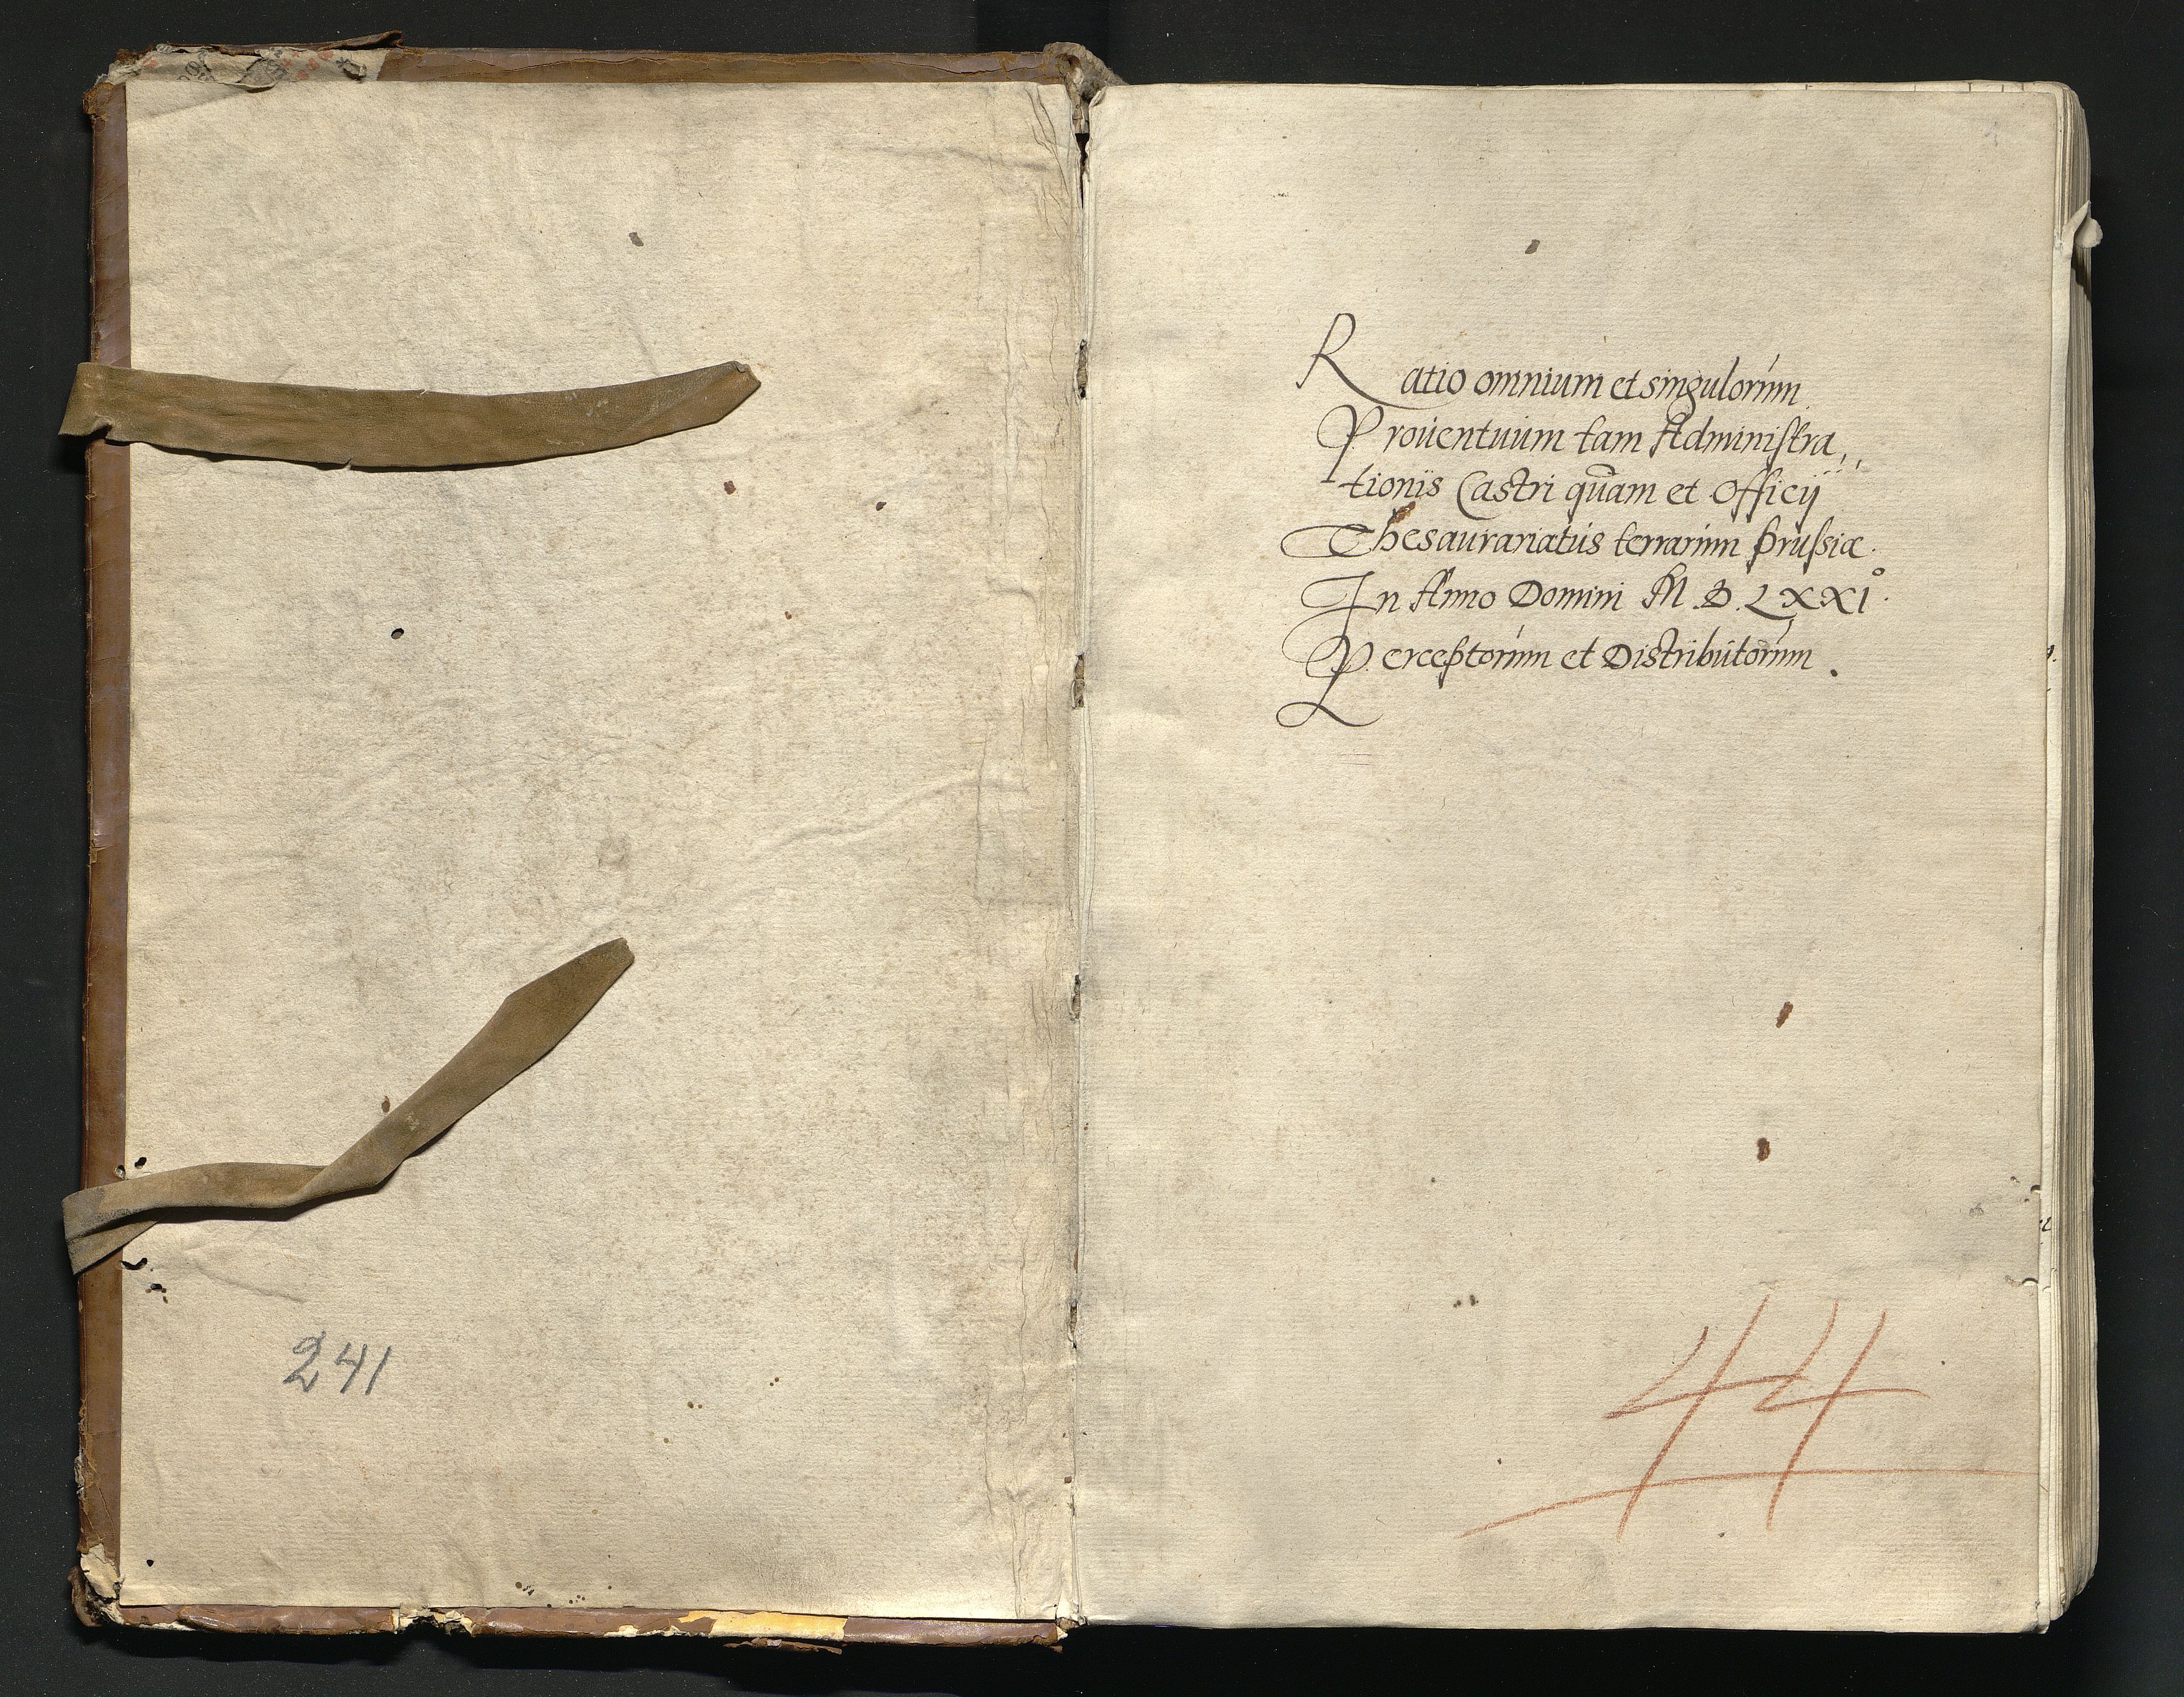 241
Ratio omnium et singulorum
Proventuum tam Administra,,
tionis Castri quam et Officij
Thesaurariatus terrarum Prussiæ.
In Anno Domini M.D.LXXI°.
Perceptorum et Distributorum.
44